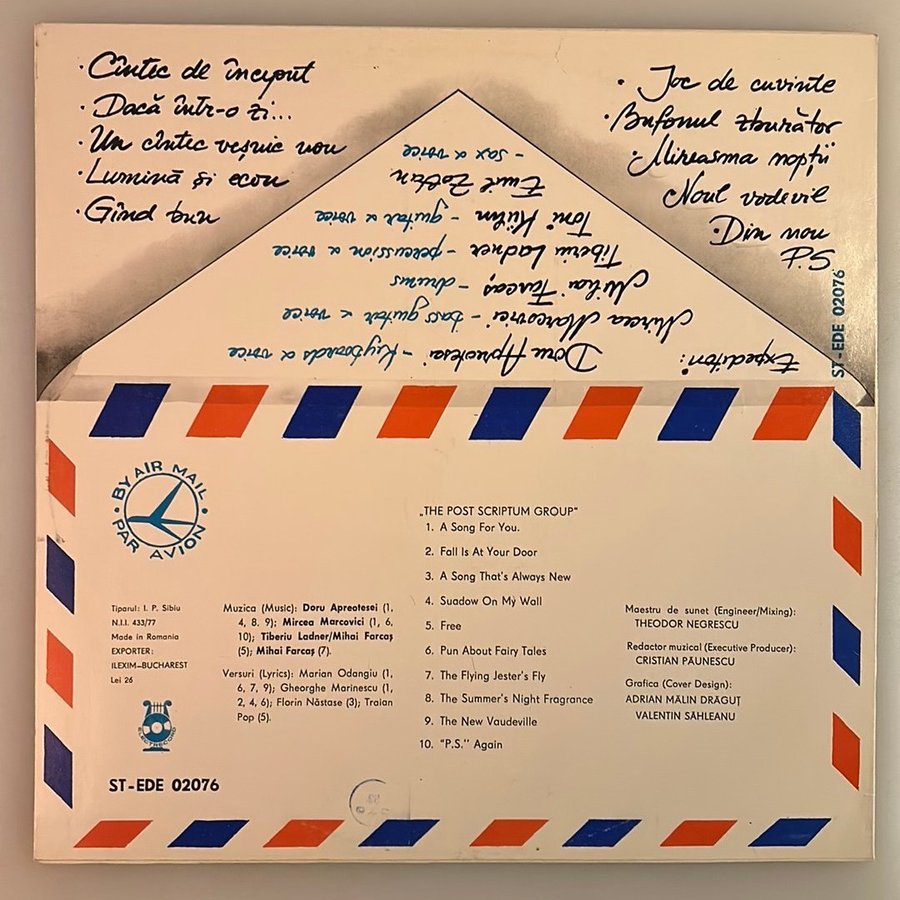 · Cîntec de început
· Dacă într-o zi...
· Un cîntec veșnic nou
· Lumină și ecou
· Gînd bun
· Joc de cuvinte
· Bufonul zburător
· Mireasma nopții
Noul vodevil
· Din nou
P.S
ST-EDE 02076
Expeditori:
Doru Apreotesei - Keyboards & voice
Mircea Marcovici - bass guitar & voice
Mihai Farcaș - drums
Tiberiu Ladner - percussion & voice
Toni Kühn - guitar & voice
Emil Zoltan
- sax & voice
BY AIR MAIL
PAR AVION
„THE POST SCRIPTUM GROUP"
1. A Song For You.
2. Fall Is At Your Door
3. A Song That's Always New
4. Suadow On My Wall
5. Free
6. Pun About Fairy Tales
7. The Flying Jester's Fly
8. The Summer's Night Fragrance
9. The New Vaudeville
10. "P.S." Again
Tiparul: I. P. Sibiu
N.I.I. 433/77
Made in Romania
EXPORTER:
ILEXIM—BUCHAREST
Lei 26
Muzica (Music): Doru Apreotesei (1,
4, 8. 9); Mircea Marcovici (1, 6,
10); Tiberiu Ladner/Mihai Farcaș
(5); Mihai Farcaș (7).
Versuri (Lyrics): Marian Odangiu (1,
6, 7, 9); Gheorghe Marinescu (1,
2, 4, 6); Florin Năstase (3); Traian
Pop (5).
Maestru de sunet (Engineer/Mixing):
THEODOR NEGRESCU
Redactor muzical (Executive Producer):
CRISTIAN PĂUNESCU
Grafica (Cover Design):
ADRIAN MĂLIN DRĂGUȚ
VALENTIN SĂHLEANU
ELECTRECORD
ST-EDE 02076